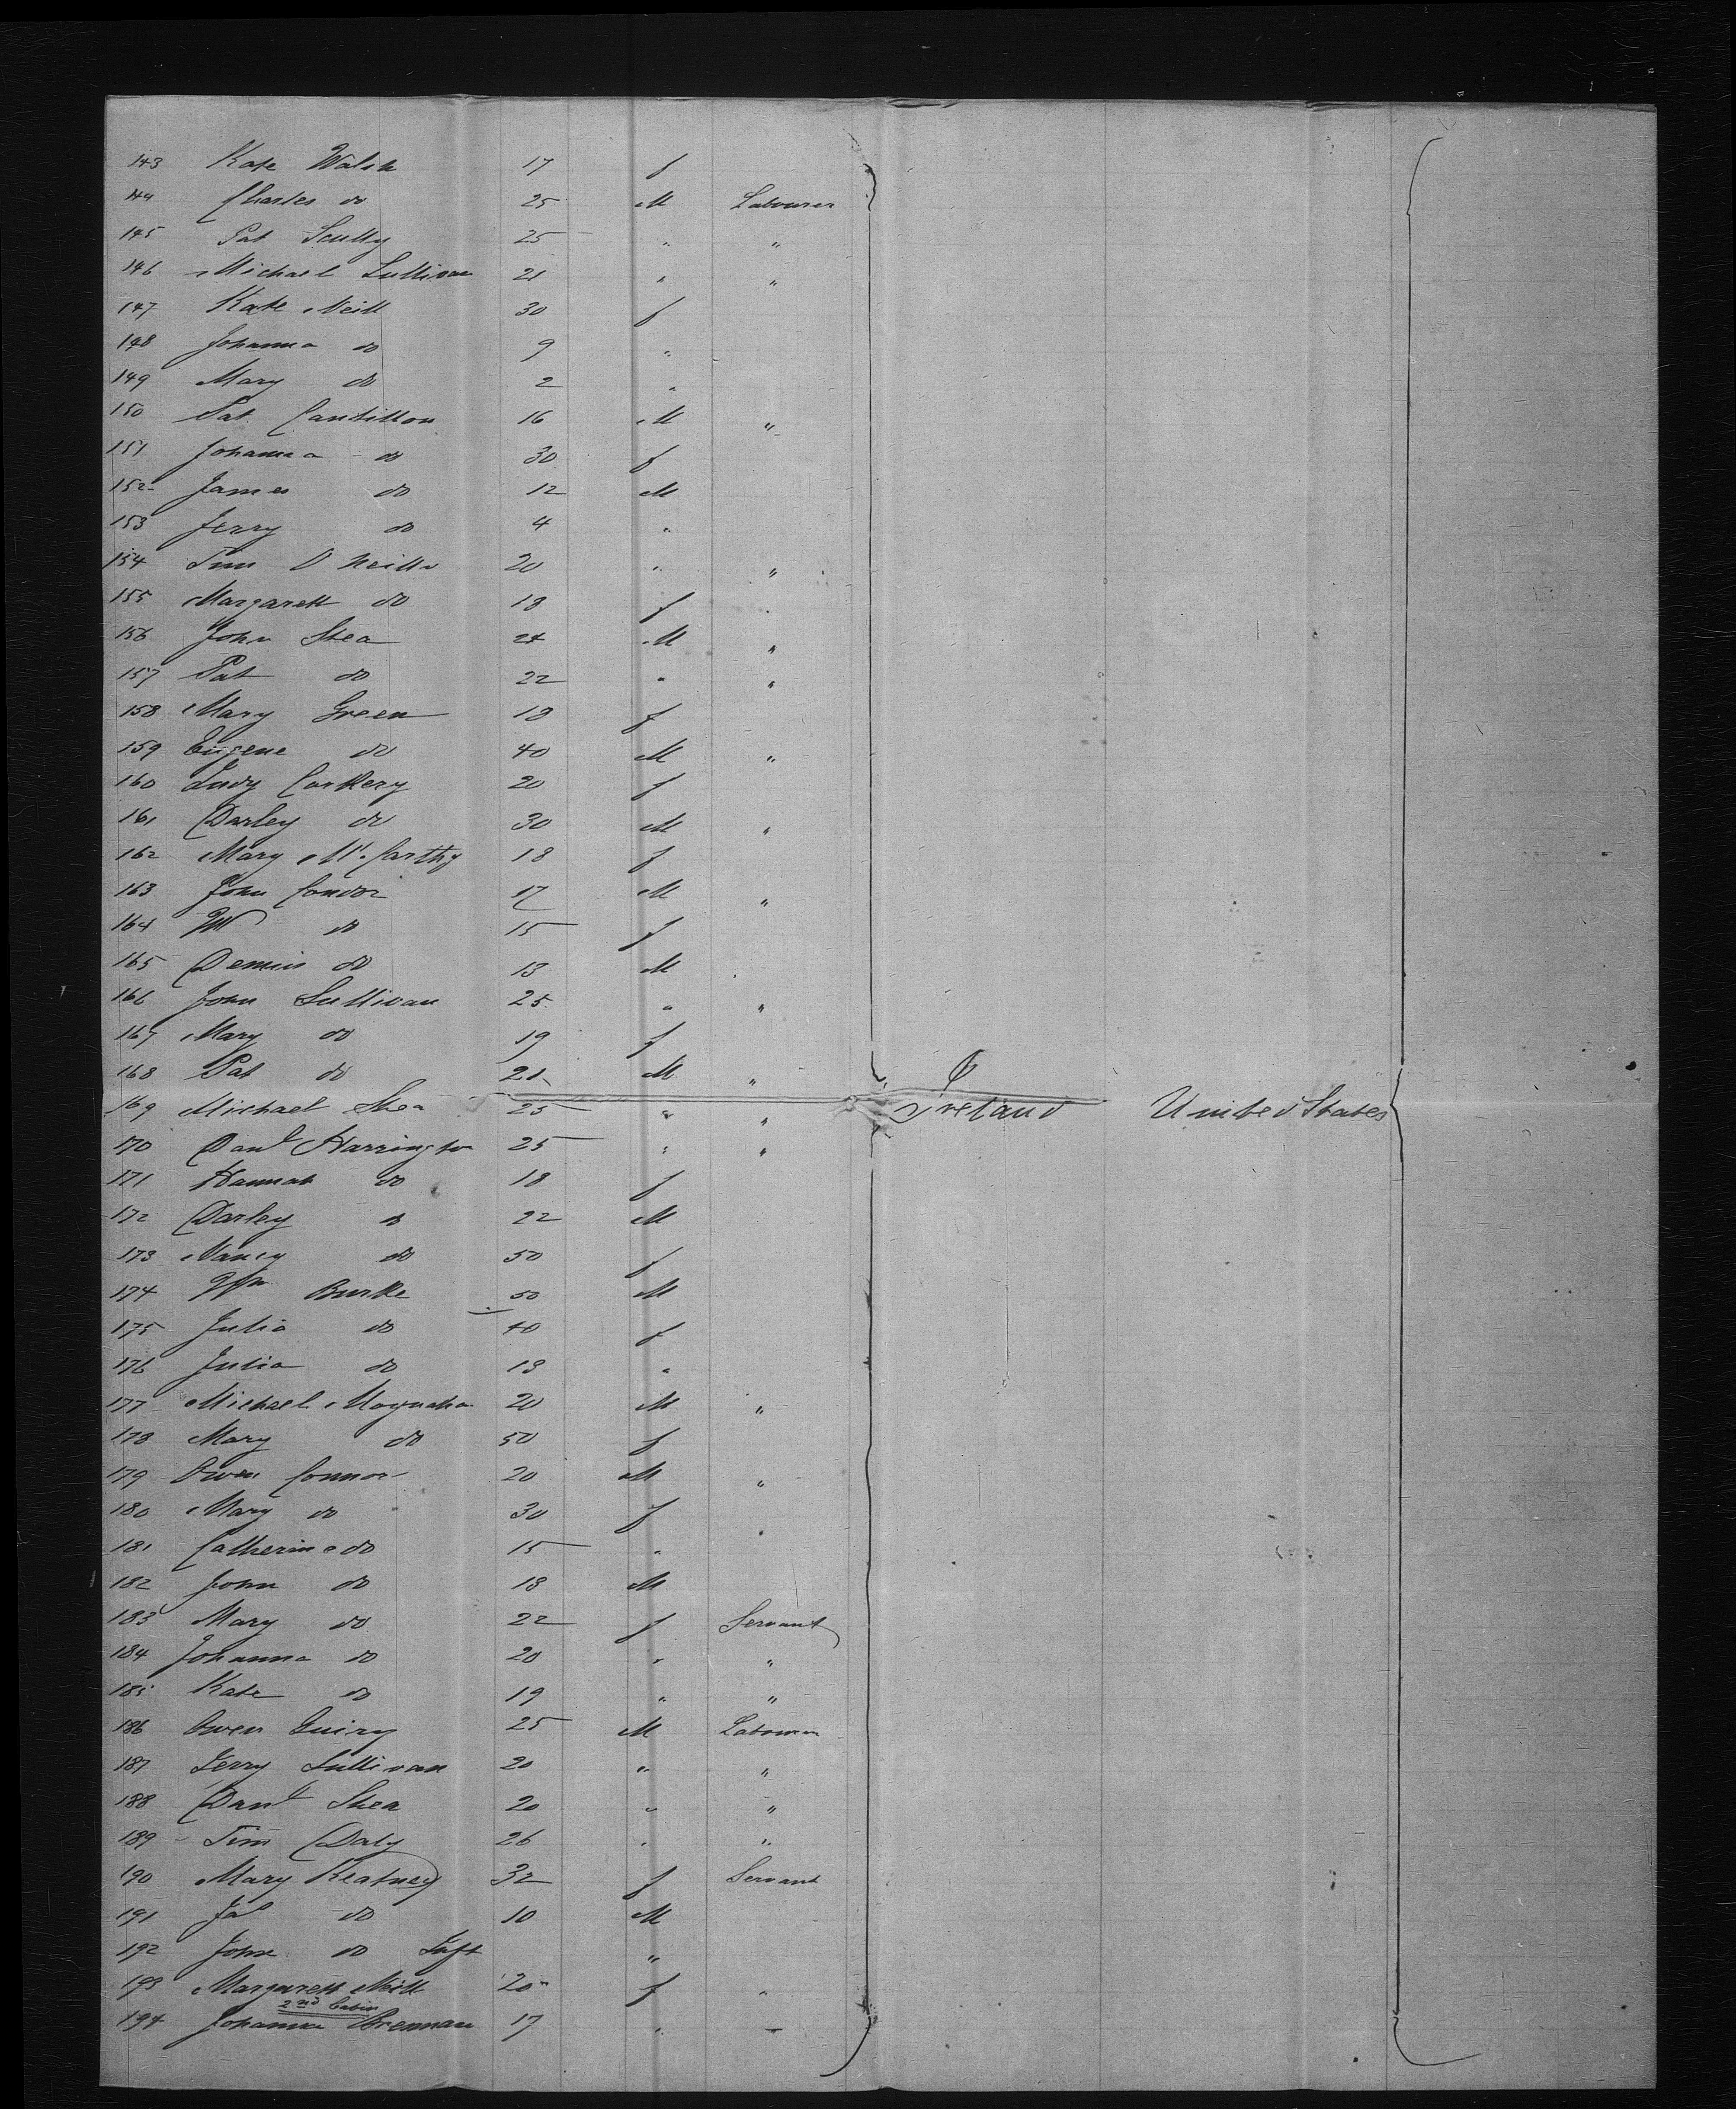 143 Kate Walsh 17 f
144 Charles do 25 M Labourer
145 Pat Scully 25 " "
146 Michael Sullivan 21 " "
147 Kate Neill 30 f
148 Johanna do 9 "
149 Mary do 2 "
150 Pat Cantillon 16 M "
151 Johanna do 30 f
152 James do 12 M
153 Jerry do 4 "
154 Tim O Neill 20 " "
155 Margarett do 18 f
156 John Shea 24 M "
157 Pat do 22 " "
158 Mary Green 18 f
159 Eugene do 40 M "
160 Judy Corkery 20 f
161 Darley do 30 M "
162 Mary Mc Carthy 18 f
163 John Condor 17 M "
164 do 15 f
165 Dennis do 13 M
166 John Sullivan 25 " "
167 Mary do 19 f
168 Pat do 21 M "
169 Michael Shea 25 " " Ireland United States
170 Danl Harrington 25 " "
171 Hannah do 18 f
172 Darley do 22 M
173 Nancy do 50 f
174 Wm Burke 50 M
175 Julia do 40 f
176 Julia do 18 "
177 Michael 20 M "
178 Mary do 50 f
179 Owen Connor 20 M "
180 Mary do 30 f
181 Catherine do 15 "
182 John do 18 M
183 Mary do 22 f Servant
184 Johanna do 20 " "
185 Kate do 19 " "
186 Owen Guiry 25 M Labourer
187 Jerry Sullivan 20 " "
188 Danl Shea 20 " "
189 Tim Daly 26 " "
190 Mary Keatney 32 f Servant
191 Jas do 10 M
192 John do Inft "
193 Margarett Neill 20 f "
2nd Cabin
194 Johanna Brennan 17 "